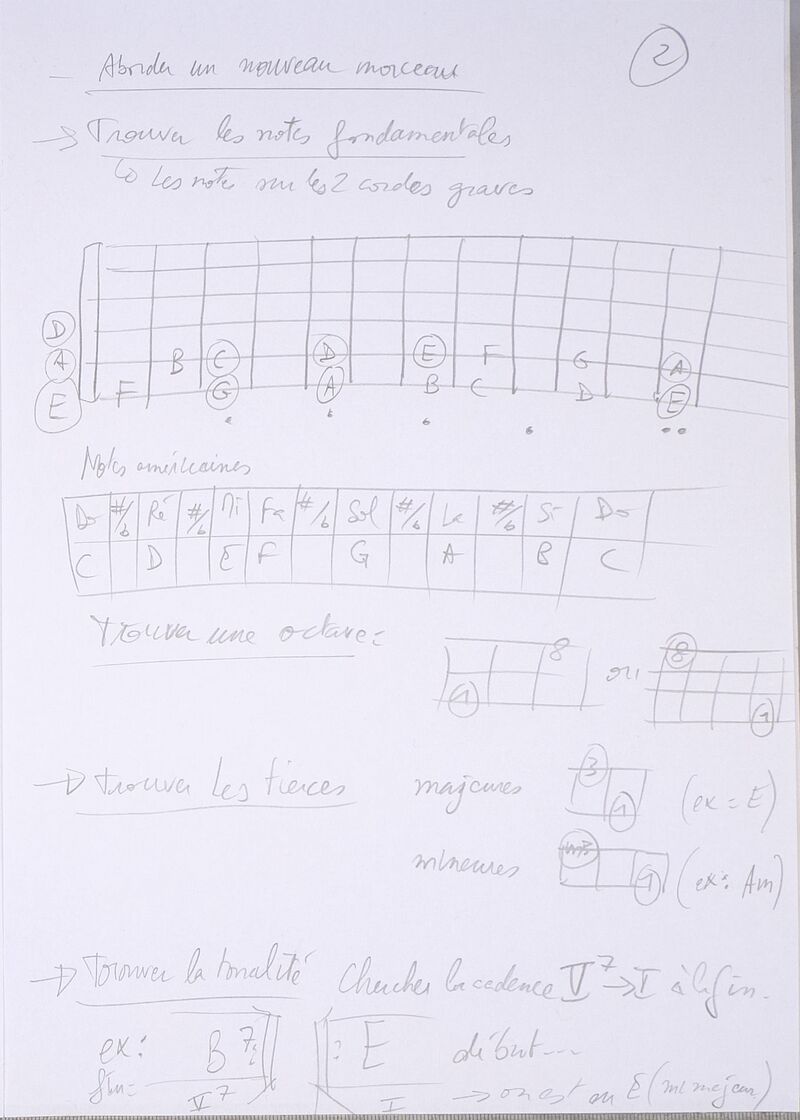 2
- Aborder un nouveau morceau
→ Trouver les notes fondamentales
↳ les notes sur les 2 cordes graves
D
A B C D E F G A
E F G A B C D E
Notes américaines
Do #/b Ré #/b Mi Fa #/b Sol #/b La #/b Si Do
C D E F G A B C
Trouver une octave :
8 ou 8
1 1
→ Trouver les tierces majeures 3 1 (ex = E)
mineures m3 1 (ex : Am)
→ Trouver la tonalité Chercher la cadence V7 → I à la fin.
ex : B7 : : E début...
fin = V7 I → on est en E (mi majeur)